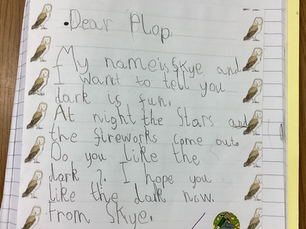 .Dear Plop.
My name is Skye and
I want to tell you
dark is fun.
At night the Stars and
the fireworks come out.
Do you like the
dark ?. I hope you
like the dark now.
from Skye.